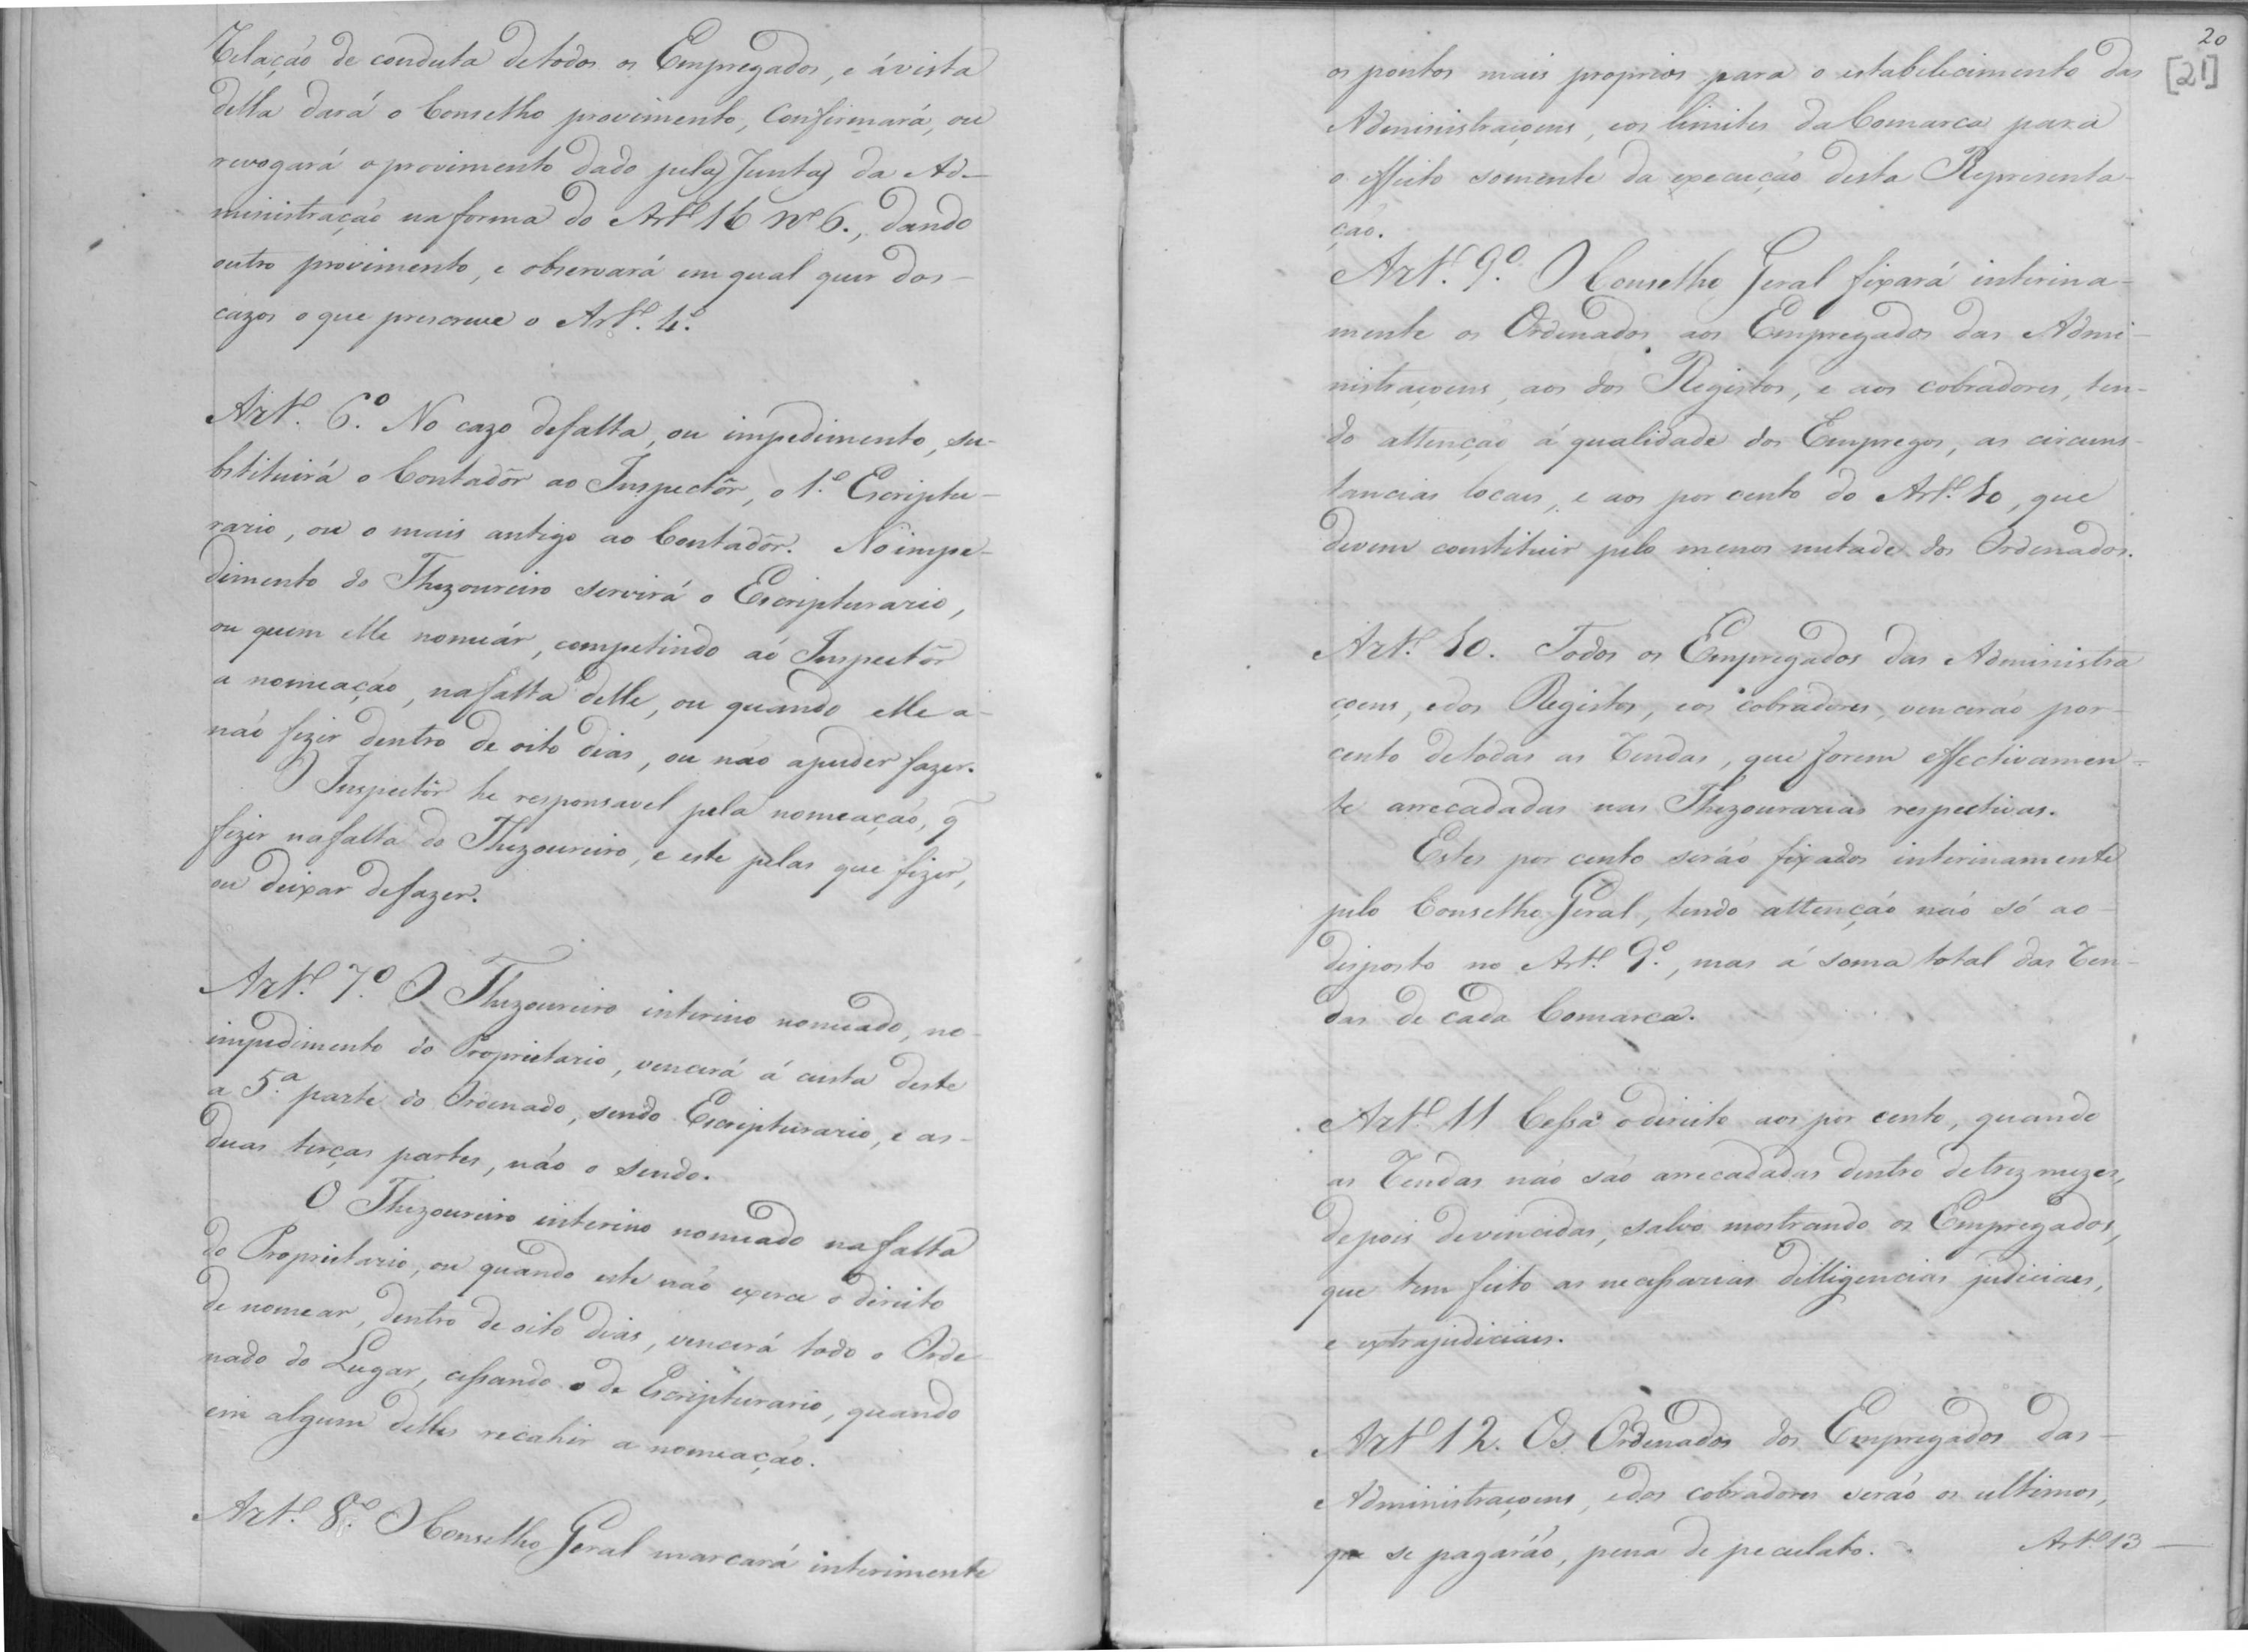 Relação de conduta de todos os Empregados, e á vista
della dará o Conselho provimento, Confirmará, ou
revogará o provimento dado pela Junta da Ad-
ministração na forma do Artº 16 Nº 6., dando
outro provimento, e observará em qual quer dos-
cazos o que prescreve o Artº. 4.º
Artº. 6.º No cazo de falta, ou impedimento, su-
bstituirá o Contadôr ao Inspectôr, o 1.º Escriptu-
rario, ou o mais antigo ao Contadôr. No impe-
dimento do Thezoureiro servirá o Escripturario,
ou quem elle nomeár, competindo aó Inspectôr
a nomeação, na falta delle, ou quando elle a-
não fizer dentro de oito dias, ou não a puder fazer.
O Inspectôr he responsavel pela nomeação, q̃
fizer na falta do Thezoureiro, e este pelas que fizer,
ou deixar de fazer.
Artº. 7.º O Thezoureiro interino nomeado, no-
impedimento do Proprietario, vencerá á custa deste
a 5.ª parte do Ordenado, sendo Escripturario, e as-
duas terças partes, não o sendo.
O Thezoureiro interino nomeado na falta
do Proprietario, ou quando este não exerce o direito
de nomear, dentro de oito dias, vencerá todo o Orde
nado do Lugar, cessando o de Escripturario, quando
em algum delles recahir a nomeação.
Artº. 8.º O Conselho Geral marcará interimente
20
[21]
os pontos mais proprios para o estabelecimento das
Administraçoens, e os limites da Comarca para
o effeito somente da execução desta Representa-
ção.
Artº. 9.º O Conselho Geral fixará interina-
mente os Ordenados aos Empregados das Admi-
nistraçoens, aos dos Registos, e aos cobradores, ten-
do attenção á qualidade dos Empregos, as circuns-
tancias locaes, e aos por cento do Artº. 10, que
devem constituir pelo menos metade dos Ordenados.
Artº. 10. Todos os Empregados das Administra
çoens, e dos Registos, e os cobradores, vencerão por-
cento de todas as Rendas, que forem effectivamen-
te arrecadadas nas Thezourarias respectivas.
Estes por cento serão fixados interinamente
pelo Conselho Geral, tendo attenção não só ao-
disposto no Artº. 9.º, mas á soma total das Ren-
das de cada Comarca.
Artº. 11 Cessa o direito aos por cento, quando
as Rendas não são arrecadadas dentro de trez mezes,
depois de vencidas, salvo mostrando os Empregados,
que tem feito as necessarias dilligencias judiciaes,
e extrajudiciaes.
Artº 12. Os Ordenados dos Empregados das-
Administraçoens, e dos cobradores serão os ultimos,
que se pagarão, pena de peculato. Artº. 13 —